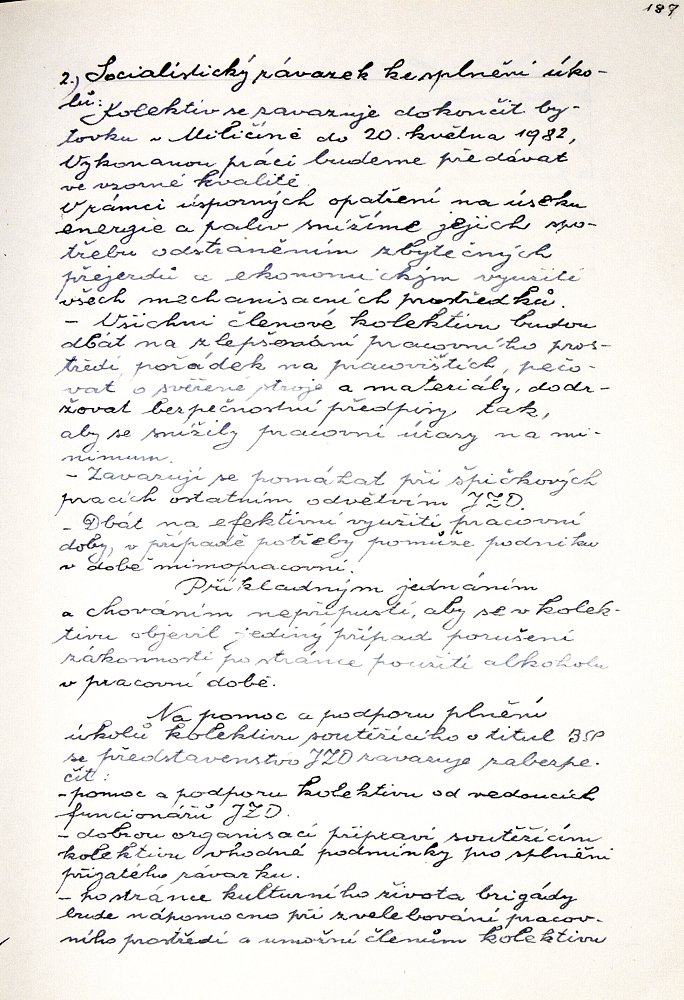 187
2.) Socialistický závazek ke splnění úko-
lů:
Kolektiv se zavazuje dokončit by-
tovku v Miličíně do 20. května 1982,
Vykonanou práci budeme předávat
ve vzorné kvalitě
V rámci úsporných opatření na úseku
energie a paliv snížíme jejich spo-
třebu odstraněním zbytečných
přejezdů a ekonomickým využití
všech mechanisacních prostředků.
- Všichni členové kolektivu budou
dbát na zlepšování pracovního pros-
tředí, pořádek na pracovištích, pečo-
vat o svěřené stroje a materiály, dodr-
žovat bezpečnostní předpisy, tak,
aby se snížily pracovní úrazy na mi-
nimum.
- Zavazují se pomáhat při špičkových
pracích ostatním odvětvím JZD.
- Dbát na efektivní využití pracovní
doby, v případě potřeby pomůže podniku
v době mimopracovní.
Příkladným jednáním
a chováním nepřipustí, aby se v kolek-
tivu objevil jediný případ porušení
zákonnosti po stránce použití alkoholu
v pracovní době.
Na pomoc a podporu plnění
úkolů kolektivu soutěžícího o titul BSP
se představenstvo JZD zavazuje zabezpe-
čit:
- pomoc a podporu kolektivu od vedoucích
funcionářů JZD.
- dobrou organisací připraví soutěžícím
kolektivu vhodné podmínky pro splnění
přijatého závazku.
- po stránce kulturního života brigády
bude nápomocno při zvelebování pracov-
ního prostředí a umožní členům kolektivu